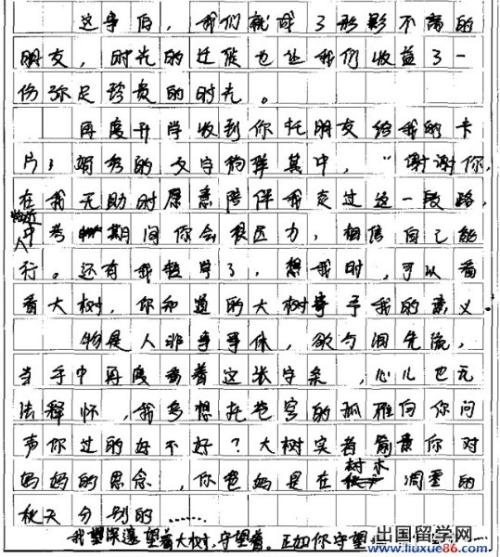 这事后，我们就成了形影不离的
朋友，时光的迁徙也让我们收益了一
份弥足珍贵的时光。
再度开学收到你托朋友给我的卡
片；娟秀的文字徜徉其中，“谢谢你，
在我无助时愿意陪伴我走过这一段路，
临近中考期间你会很压力，相信自己能
行。还有我转学了，想我时，可以看
看大树，你知道的大树寄予我的意义。
物是人非事事休，欲语泪先流，
当手中再度看着这张字条，心儿也无
法释怀，我多想托苍穹的孤雁向你问
声你过的好不好？大树实着你对
妈妈的思念，你爸妈是在树木凋零的
秋天分别的……
我望深邃望着大树，守望着。正如你守望
出国留学网
www.liuxue86.com